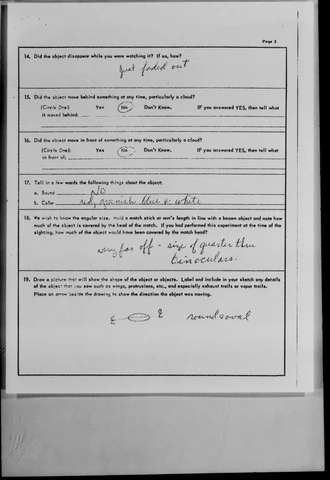 Page 3
14. Did the object disappear while you were watching it? If so, how?
Just faded out
15. Did the object move behind something at any time, particularly a cloud?
(Circle One): Yes No Don't Know. IF you answered YES, then tell what
it moved behind:
16. Did the object move in front of something at any time, particularly a cloud?
(Circle One): Yes No Don't Know. IF you answered YES, then tell what
in front of:
17. Tell in a few words the following things about the object:
a. Sound NO
b. Color red, greenish blue & white
18. We wish to know the angular size. Hold a match stick at arm's length in line with a known object and note how
much of the object is covered by the head of the match. If you had performed this experiment at the time of the
sighting, how much of the object would have been covered by the match head?
very far off - size of quarter thru
binoculars.
19. Draw a picture that will show the shape of the object or objects. Label and include in your sketch any details
of the object that you saw such as wings, protrusions, etc., and especially exhaust trails or vapor trails.
Place an arrow beside the drawing to show the direction the object was moving.
round & oval